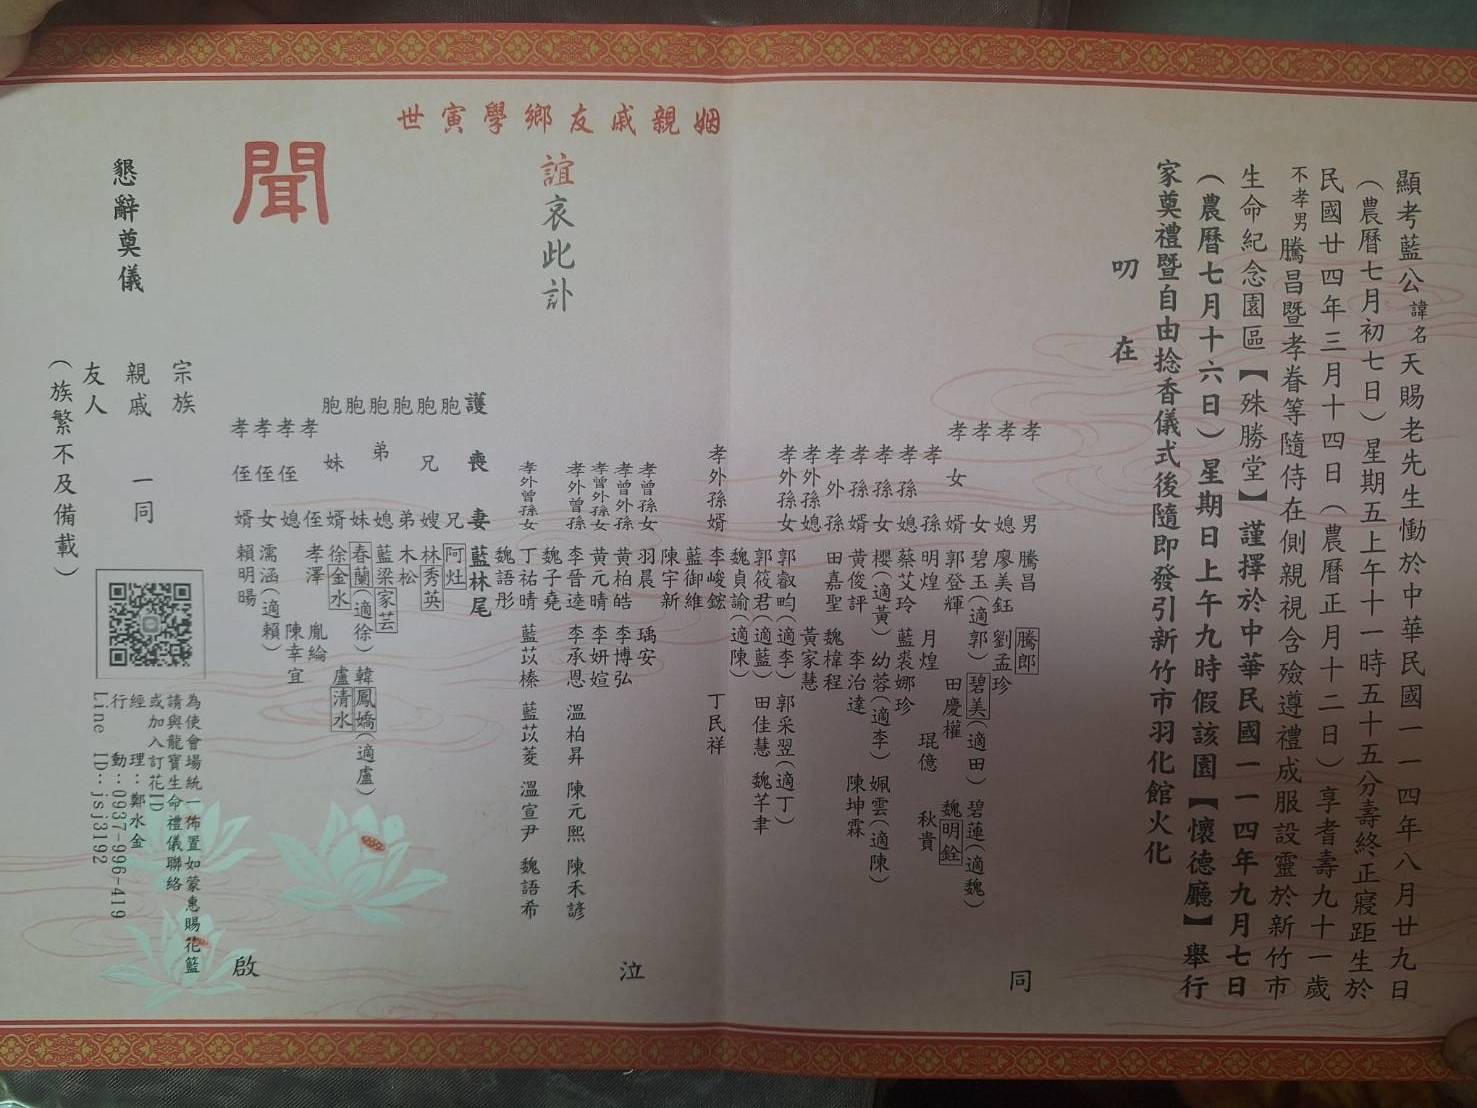 顯考藍公諱名天賜老先生慟於中華民國一一四年八月廿九日
(農曆七月初七日)星期五上午十一時五十五分壽終正寢距生於
民國廿四年三月十四日(農曆正月十二日)享耆壽九十一歲
不孝男騰昌暨孝眷等隨侍在側親視含殮遵禮成服設靈於新竹市
生命紀念園區【殊勝堂】謹擇於中華民國一一四年九月七日
(農曆七月十六日)星期日上午九時假該園【懷德廳】舉行
家奠禮暨自由捻香儀式後隨即發引新竹市羽化館火化
叨在
姻親戚友鄉學寅世
誼哀此訃
聞
孝男 騰昌 騰郎
孝媳 廖美鈺 劉孟珍
孝女 碧玉(適郭) 碧美(適田) 碧蓮(適魏)
孝女婿 郭登輝 田慶權 魏明銓
孝孫 明煌 月煌 琨億 秋貴
孝孫媳 蔡艾玲 藍裘娜珍
孝孫女 櫻(適黃) 幼蓉(適李) 姵雲(適陳)
孝孫婿 黃俊評 李治達 陳坤霖
孝外孫 田嘉聖 魏楟程
孝外孫媳 黃家慧
孝外孫女 郭叡畇(適李) 郭采翌(適丁)
郭筱君(適藍) 田佳慧 魏芊聿
魏貞諭(適陳)
孝外孫婿 李峻鋐 丁民祥
藍御維
陳宇新
孝曾孫女 羽晨 瑀安
孝曾外孫 黃柏皓 李博弘
孝曾外孫女 黃元晴 李妍媗
孝外曾孫 李晉逵 李承恩 溫柏昇 陳元熙 陳禾諺
魏子堯
孝外曾孫女 丁祐晴 藍苡榛 藍苡菱 溫宣尹 魏語希
魏語彤
護喪妻 藍林尾
胞兄 阿灶
胞兄嫂 林秀英
胞弟 木松
胞弟媳 藍梁家芸
胞妹 春蘭(適徐) 韓鳳嬌(適盧)
胞妹婿 徐金水 盧清水
孝侄 孝澤 胤綸
孝侄媳 陳幸宜
孝侄女 濡涵(適賴)
孝侄婿 賴明暘
同
泣
啟
宗族
親戚 一同
友人
(族繁不及備載)
懇辭奠儀
為使會場統一佈置如蒙惠賜花籃
請與龍寶生命禮儀聯絡
或加入訂花ID
經理:鄭水金
行動:0937-996-419
Line ID:jsj3192